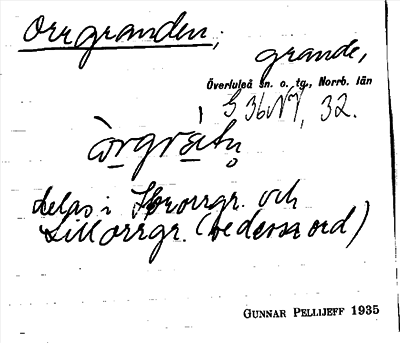 Orrgranden,
grande,
Överluleå sn. o. tg., Norrb. län
delas i Storrgr. och
Lillorrgr. (se dessa ord)
GUNNAR PELLIJEFF 1935